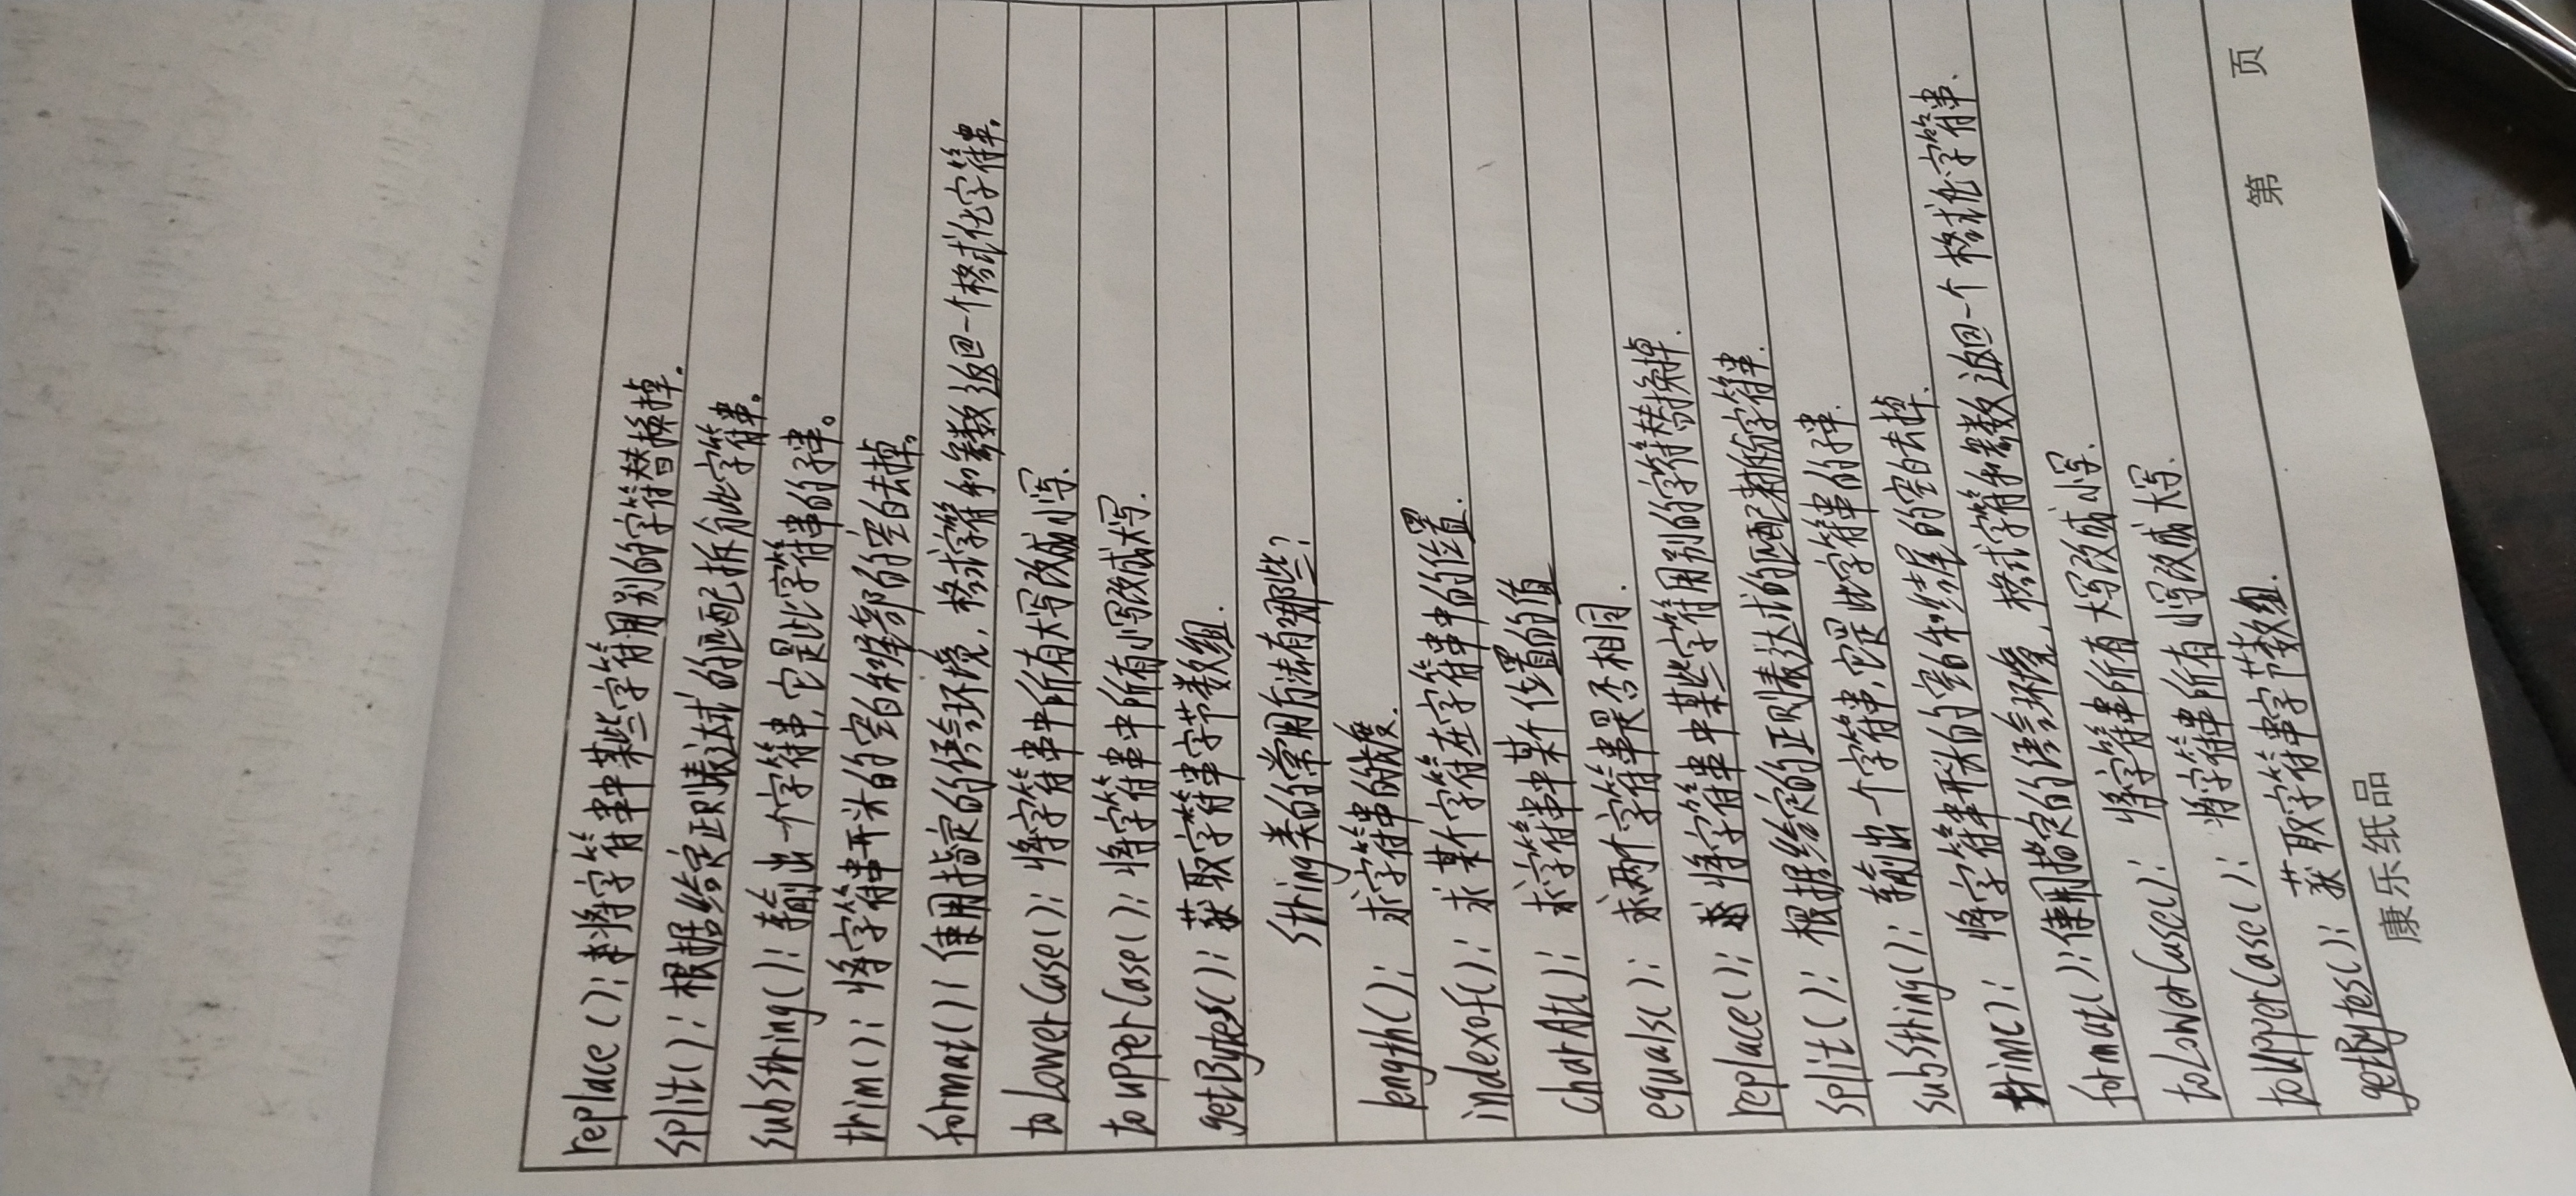 replace(): 将字符串中某些字符用别的字符替换掉。
split(): 根据给定正则表达式的匹配拆分此字符串。
substring(): 输出一个字符串,它是此字符串的子串。
trim(): 将字符串开头的空白和尾部的空白去掉。
format(): 使用指定的语言环境,格式字符和参数返回一个格式化字符串。
toLowerCase(): 将字符串中所有大写改成小写.
toupperCase(): 将字符串中所有小写改成大写.
getBytes(): 获取字符串字节数组.
String类的常用方法有哪些?
length(): 求字符串的长度.
indexof(): 求某个字符在字符串中的位置.
charAt(): 求字符串中某个位置的值
equals(): 求两个字符串是否相同.
replace(): 将字符串中某些字符用别的字符替换掉.
split(): 根据给定的正则表达式的匹配来拆分字符串.
substring(): 输出一个字符串,它是此字符串的子串.
trim(): 将字符串开头的空白和结尾的空白去掉.
format(): 使用指定的语言环境,格式字符和参数返回一个格式化字符串.
toLowerCase(): 将字符串所有大写改成小写.
toUpperCase(): 将字符串所有小写改成大写.
getBytes(): 获取字符串字节数组.
康乐纸品 第 页